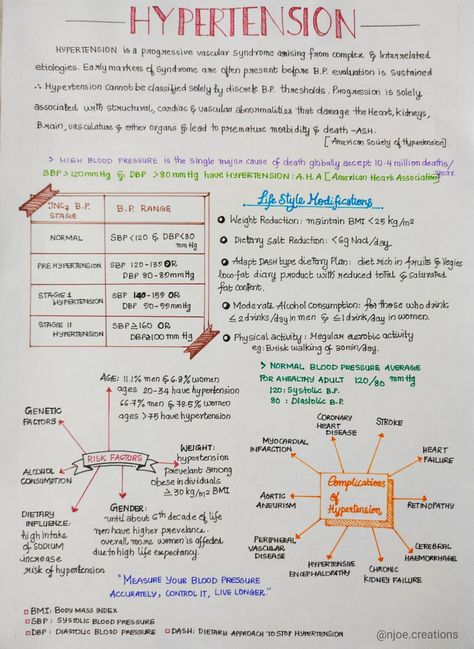 HYPERTENSION
HYPERTENSION is a progressive vascular syndrome arising from complex & Interrelated
etiologies. Early markers of syndrome are often present before B.P. evaluation is sustained
∴ Hypertension cannot be classified solely by discrete B.P. thresholds. Progression is solely
associated with structural, cardiac & vascular abnormalities that damage the Heart, kidneys,
Brain, vasculature & other organs & lead to premature morbidity & death -ASH.
[American Society of Hypertension]
> HIGH BLOOD PRESSURE is the single major cause of death globally accept 10.4 million deaths/year
SBP >120mmHg & DBP >80mmHg have HYPERTENSION: A.H.A [American Heart Association]
JNC7 B.P. STAGE
B.P. RANGE
NORMAL
SBP <120 & DBP<80 mmHg
PREHYPERTENSION
SBP 120-139 OR
DBP 80-89mmHg
STAGE 1 HYPERTENSION
SBP 140-159 OR
DBP 90-99mmHg
STAGE II HYPERTENSION
SBP ≥160 OR
DBP≥100 mmHg
Life Style Modifications
Weight Reduction: maintain BMI <25 kg/m²
Dietary Salt Reduction: <6g Nad/day
Adapt DASH type dietary Plan: diet rich in fruits & Vegies
low-fat diary product with reduced total & saturated
fat content.
Moderate Alcohol Consumption: for those who drink
≤2 drinks/day in men & ≤1 drink/day in women.
Physical activity: Regular aerobic activity
eg: Brisk walking of 30min/day.
> NORMAL BLOOD PRESSURE AVERAGE
FOR A HEALTHY ADULT 120/80 mmHg
120: Systolic B.P.
80 : Diastolic B.P.
RISK FACTORS
AGE: 11.1% men & 6.8% women
ages 20-34 have hypertension
66.7% men & 78.5% women
ages >75 have hypertension
GENETIC
FACTORS
ALCOHOL
CONSUMPTION
DIETARY
INFLUENCE:
high intake
of SODIUM
increase
risk of hypertension
GENDER:
until about 6th decade of life
men have higher prevelance.
overall, more women is affected
due to high life expectancy.
WEIGHT:
hypertension
prevelant among
obese individuals
≥30 kg/m² BMI
Complications
Of
Hypertension
CORONARY
HEART
DISEASE
STROKE
HEART
FAILURE
RETINOPATHY
CEREBRAL
HAEMORRHAGE
CHRONIC
KIDNEY FAILURE
HYPERTENSIVE
ENCEPHALOPATHY
PERIPHERAL
VASCULAR
DISEASE
AORTIC
ANEURISM
MYOCARDIAL
INFARCTION
"MEASURE YOUR BLOOD PRESSURE
ACCURATELY, CONTROL IT, LIVE LONGER."
BMI: BODY MASS INDEX
SBP : SYSTOLIC BLOOD PRESSURE
DBP : DIASTOLIC BLOOD PRESSURE
DASH: DIETARY APPROACH TO STOP HYPERTENSION
@njoe.creations